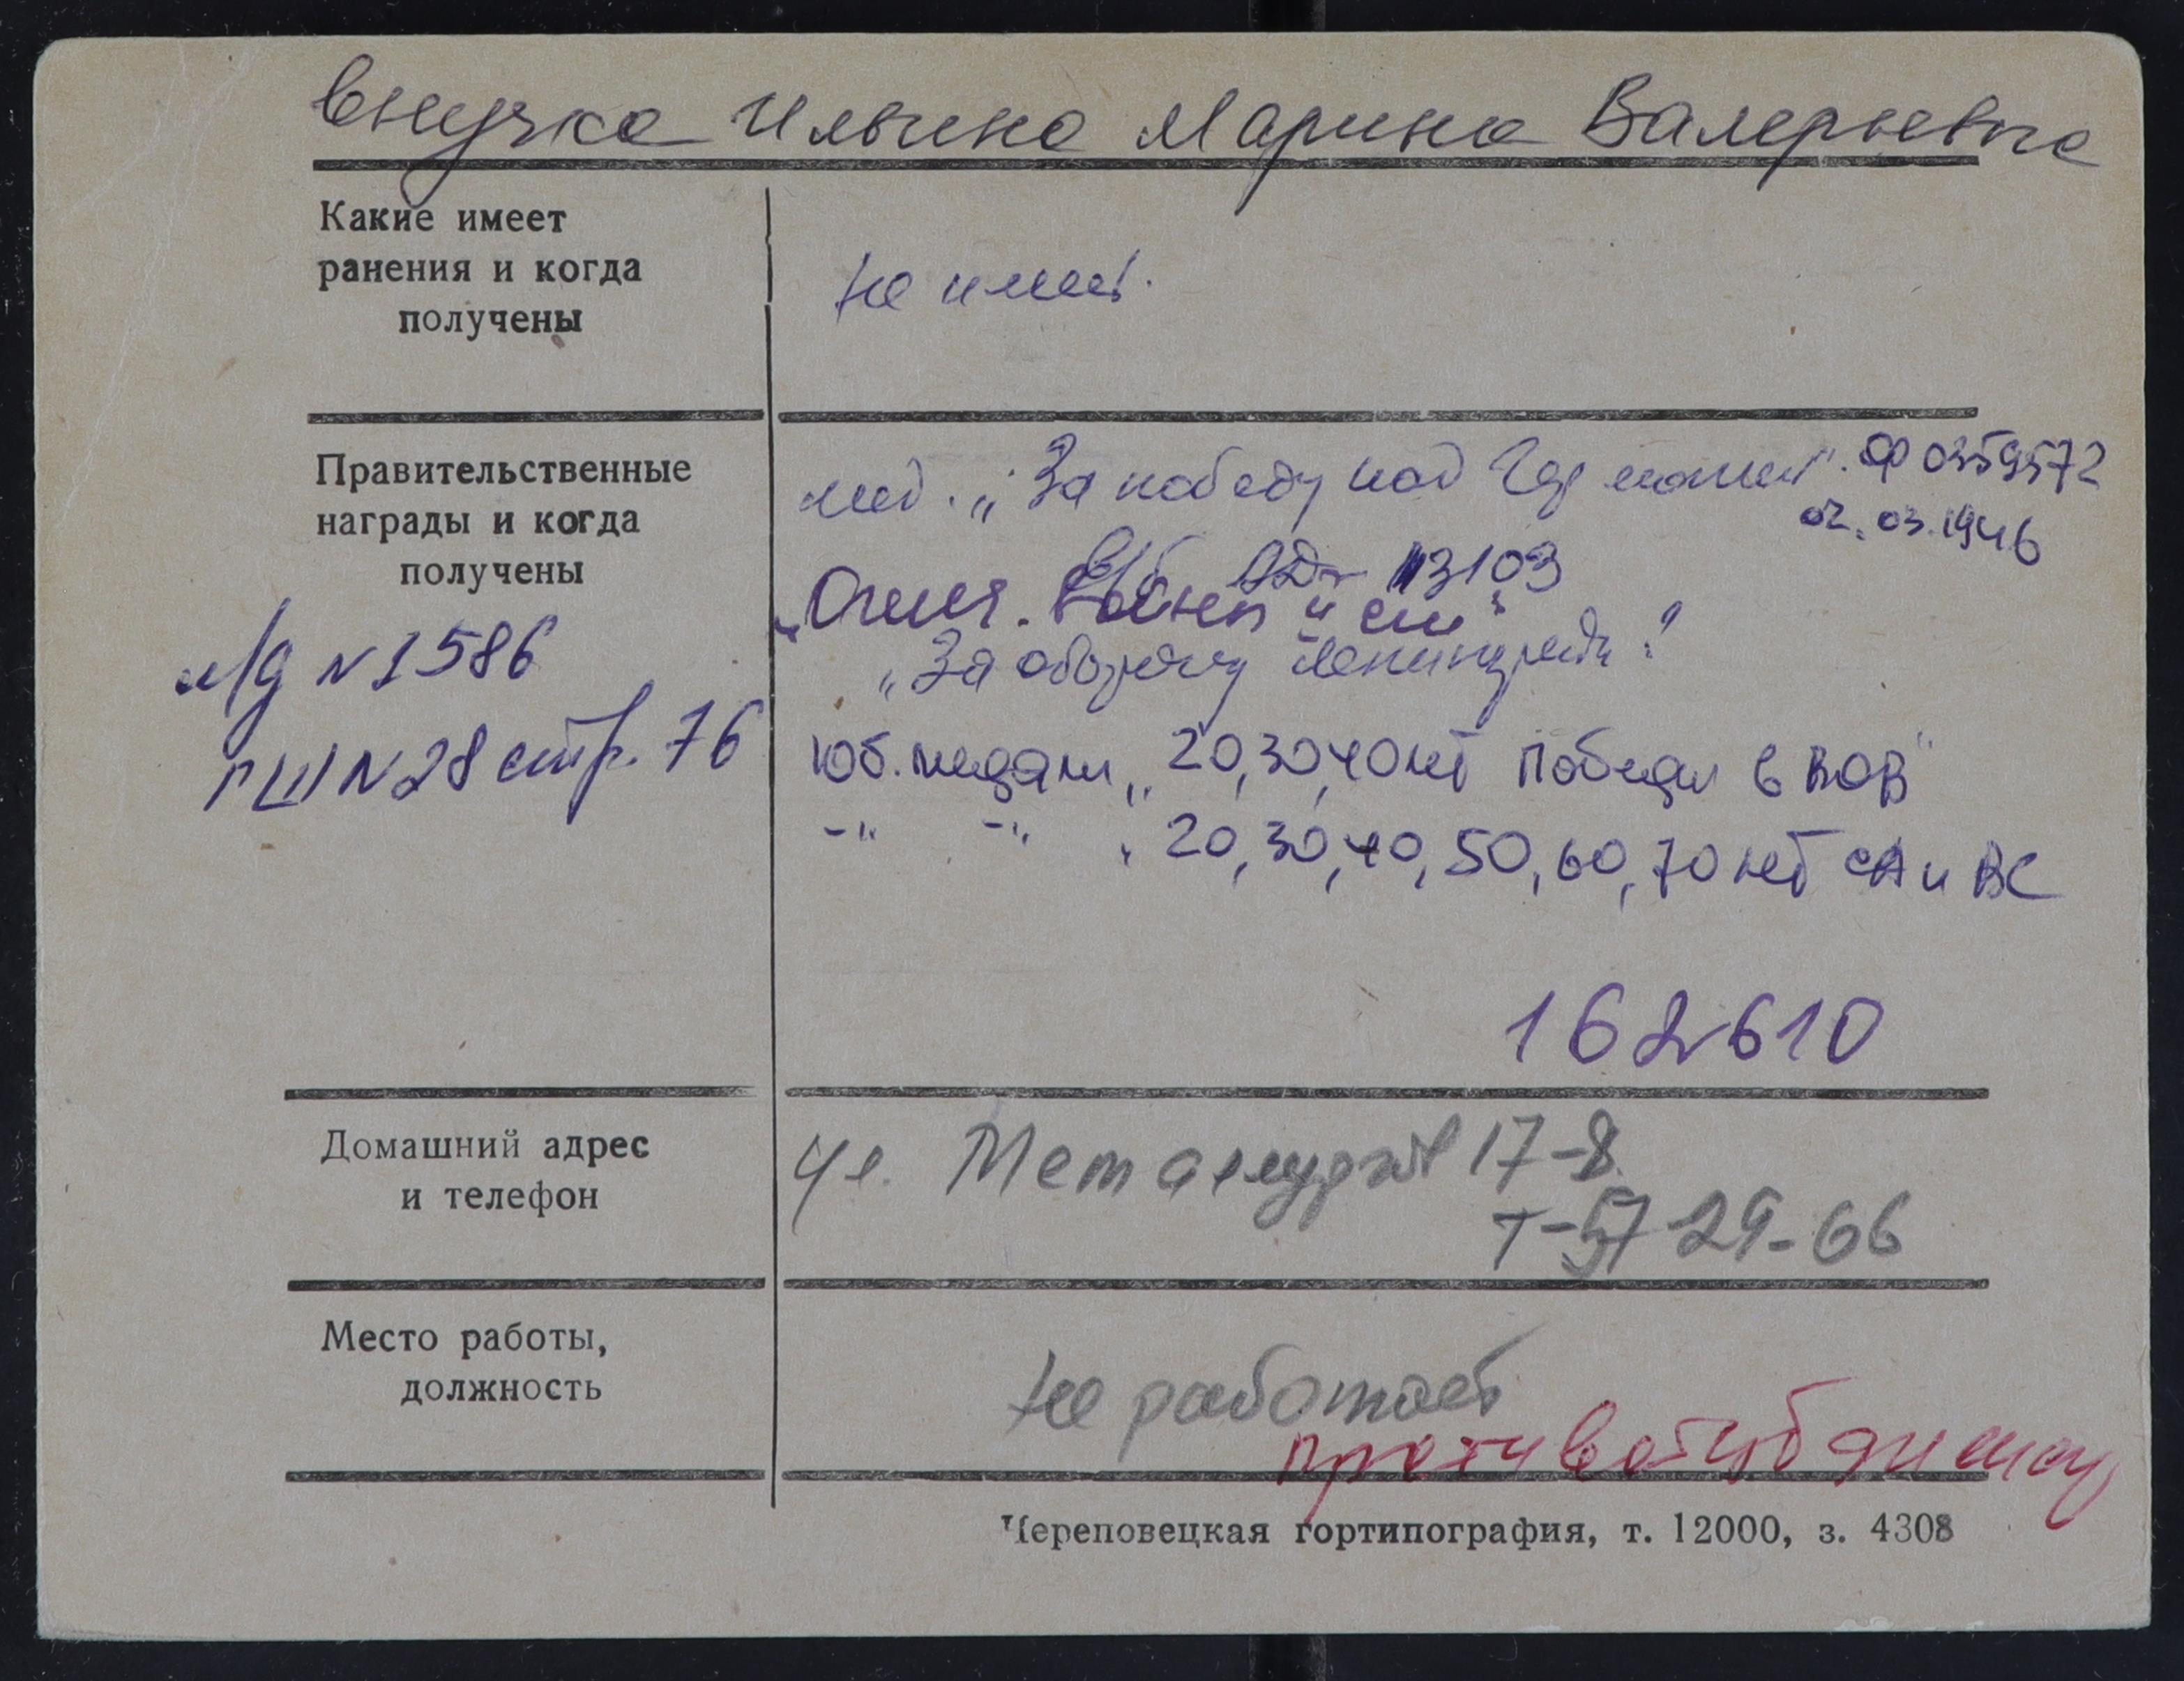 внучка Ильина Марина Валерьевна
Какие имеет
ранения и когда
получены
не имеет.
Правительственные
награды и когда
получены
мед. „За победу над Германией". Ф 0359572
02.03.1946
13103
„Отеч. Войны II ст"
„За оборону Ленинграда"
м/д №1586
ГШ №28 стр. 76
Юб. медали „20,30,40 лет Победы в ВОВ"
-"- -"- „20,30,40,50,60,70 лет СА и ВС
162610
Домашний адрес
и телефон
ул. Металлургов 17-8
т-57-29-66
Место работы,
должность
не работает
Череповецкая гортипография, т. 12000, з. 4308